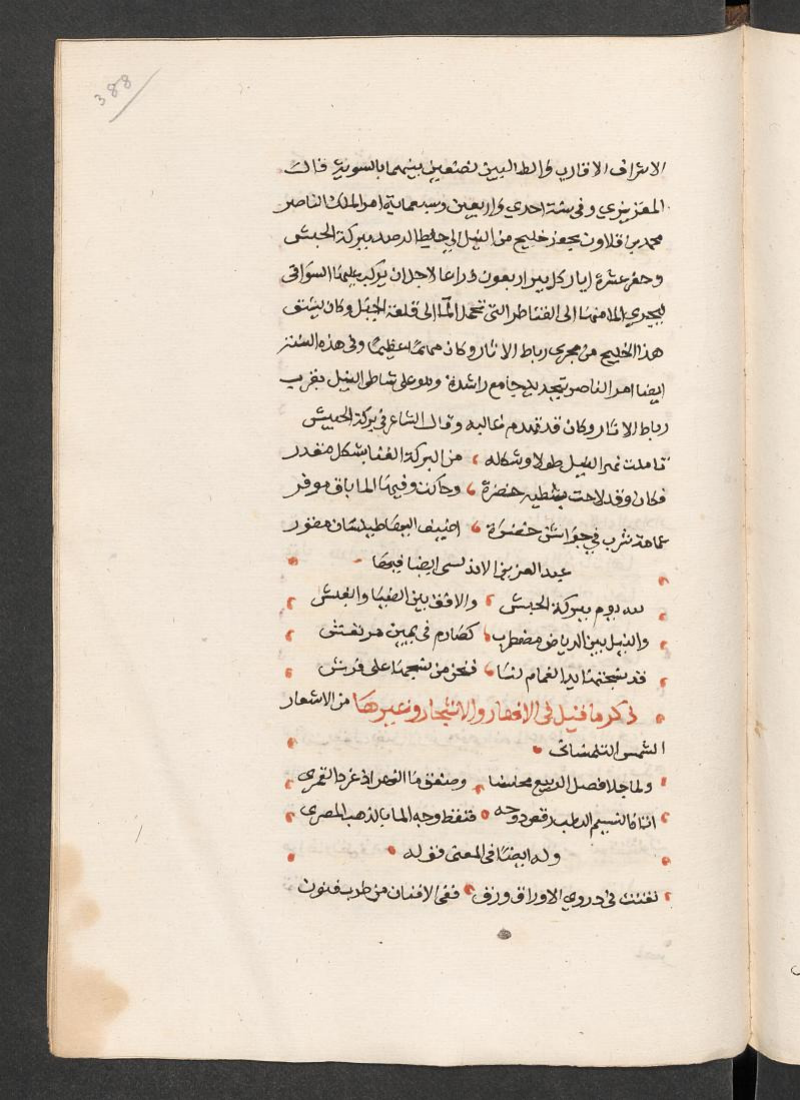 388
الاشراف الاقارب والطالبيين نصفين بينهما بالسوية قال
المقريزي وفي سنة احدي واربعين وسبعماية امر الملك الناصر
محمد بن قلاون بحفر خليج من النيل الي حايط الرصد ببركة الحبش
وحفر عشرة ابار كل بير اربعون ذراعا لاجل ان يركب عليها السواقي
ليجري الما منها الي القناطر التي تحمل الما الي قلعة الجبل وكان يشق
هذا الخليج من مجري رباط الاثار وكان مهما عظيما وفي هذه السنة
ايضا امر الناصر بتجديد جامع راشدة وهو علي شاطي النيل بقرب
رباط الاثار وكان قد تهدم غالبه وقال الشاعر في بركة الحبش
تاملت نهر النيل طولا وشكله من البركة الغنا بشكل مقدر
فكان وقد لاحت بشطيه خضرة وحاكت وفيها الما باق موفر
عمامة شرب في حواشي خضرة اضيف اليها طيلسان مقور
عبد العزيز الاندلسي ايضا فيها
لله يوم ببركة الحبش والافق بين الضيا والغبش
والنيل بين الرياض مضطرب كصارم في يمين مرتعش
قد نسجتها يد الغمام لنا فنحن من نسجها علي فرش
ذكر ما قيل في الازهار والاشجار وغيرها من الاشعار
الشمس التلمساني
ولما جلا فصل الربيع محاسنا وصفق ما النهر اذ غرد القمري
اتاه النسيم الرطب رقص دوحه فنقط وجه الما بالذهب المصري
وله ايضا في المعني قوله
تغنت في دروي الاوراق ورق ففي الافنان من طرب فنون